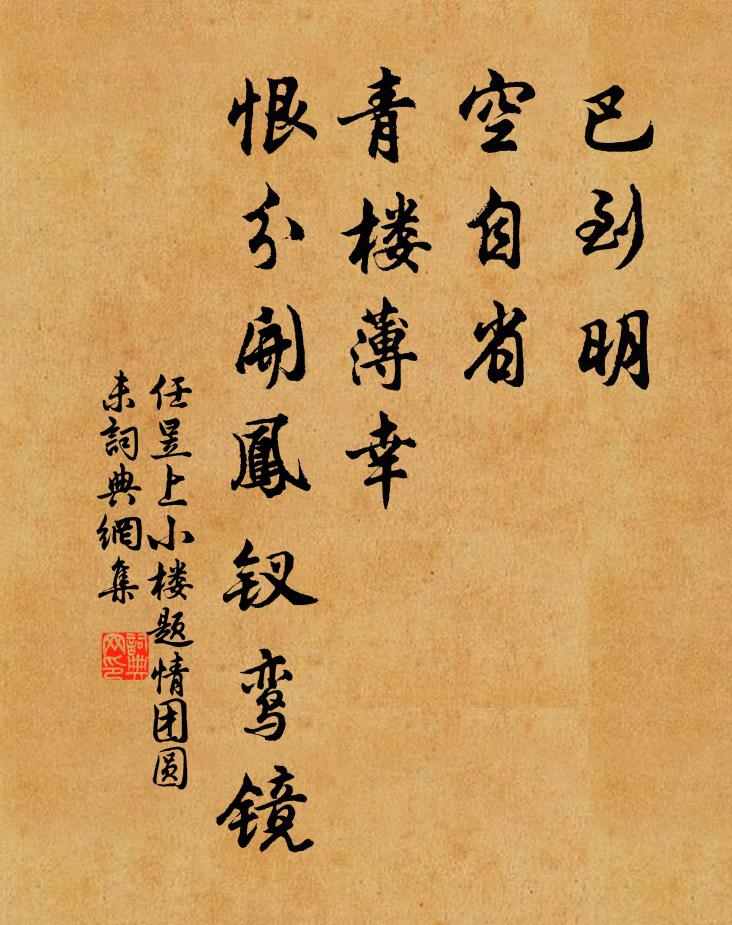 已到明
空自省
青楼薄幸
恨分開鳳钗鸾镜
任昱上小楼题情团圆
未詞典網集
詞典网印